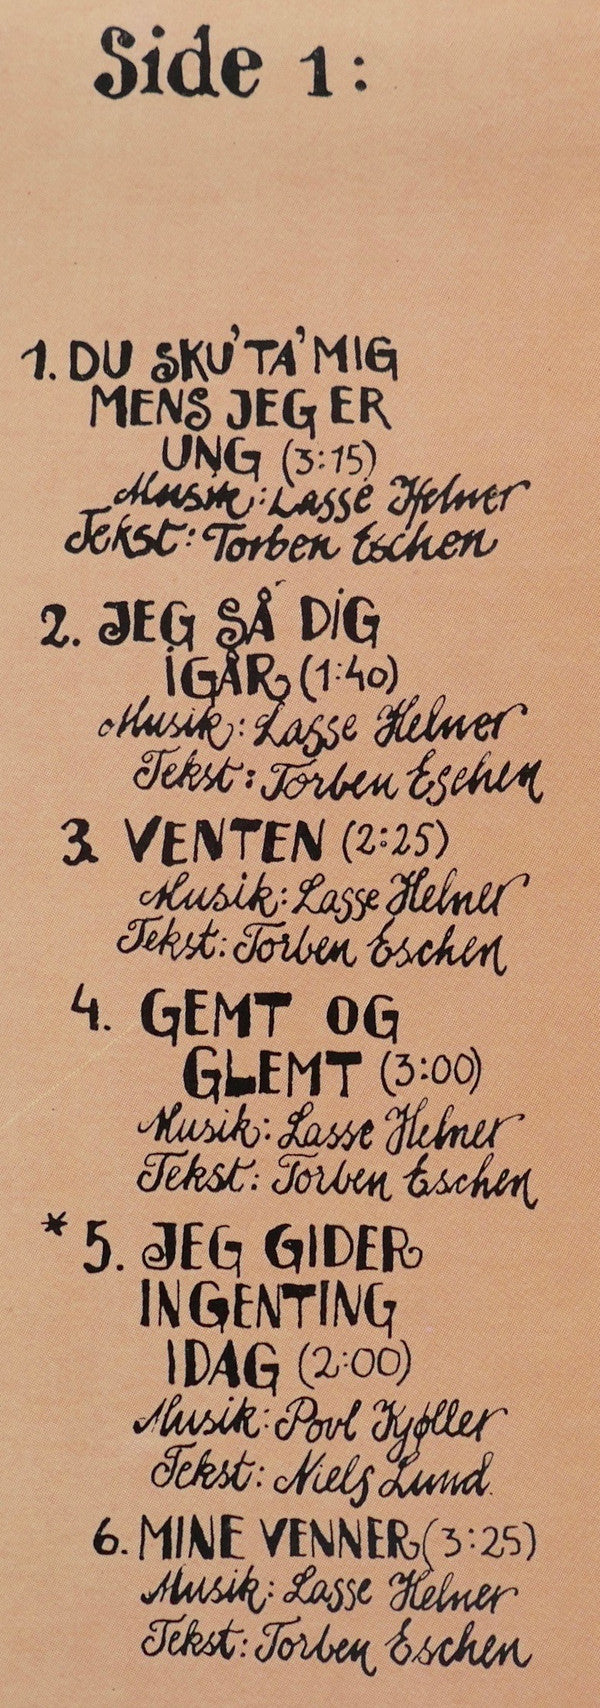 Side 1:
1. DU SKU' TA' MIG
MENS JEG ER
UNG (3:15)
Musik: Lasse Helner
Tekst: Torben Eschen
2. JEG SÅ DIG
IGÅR (1:40)
Musik: Lasse Helner
Tekst: Torben Eschen
3. VENTEN (2:25)
Musik: Lasse Helner
Tekst: Torben Eschen
4. GEMT OG
GLEMT (3:00)
Musik: Lasse Helner
Tekst: Torben Eschen
* 5. JEG GIDER
INGENTING
IDAG (2:00)
Musik: Povl Kjøller
Tekst: Niels Lund.
6. MINE VENNER (3:25)
Musik: Lasse Helner
Tekst: Torben Eschen